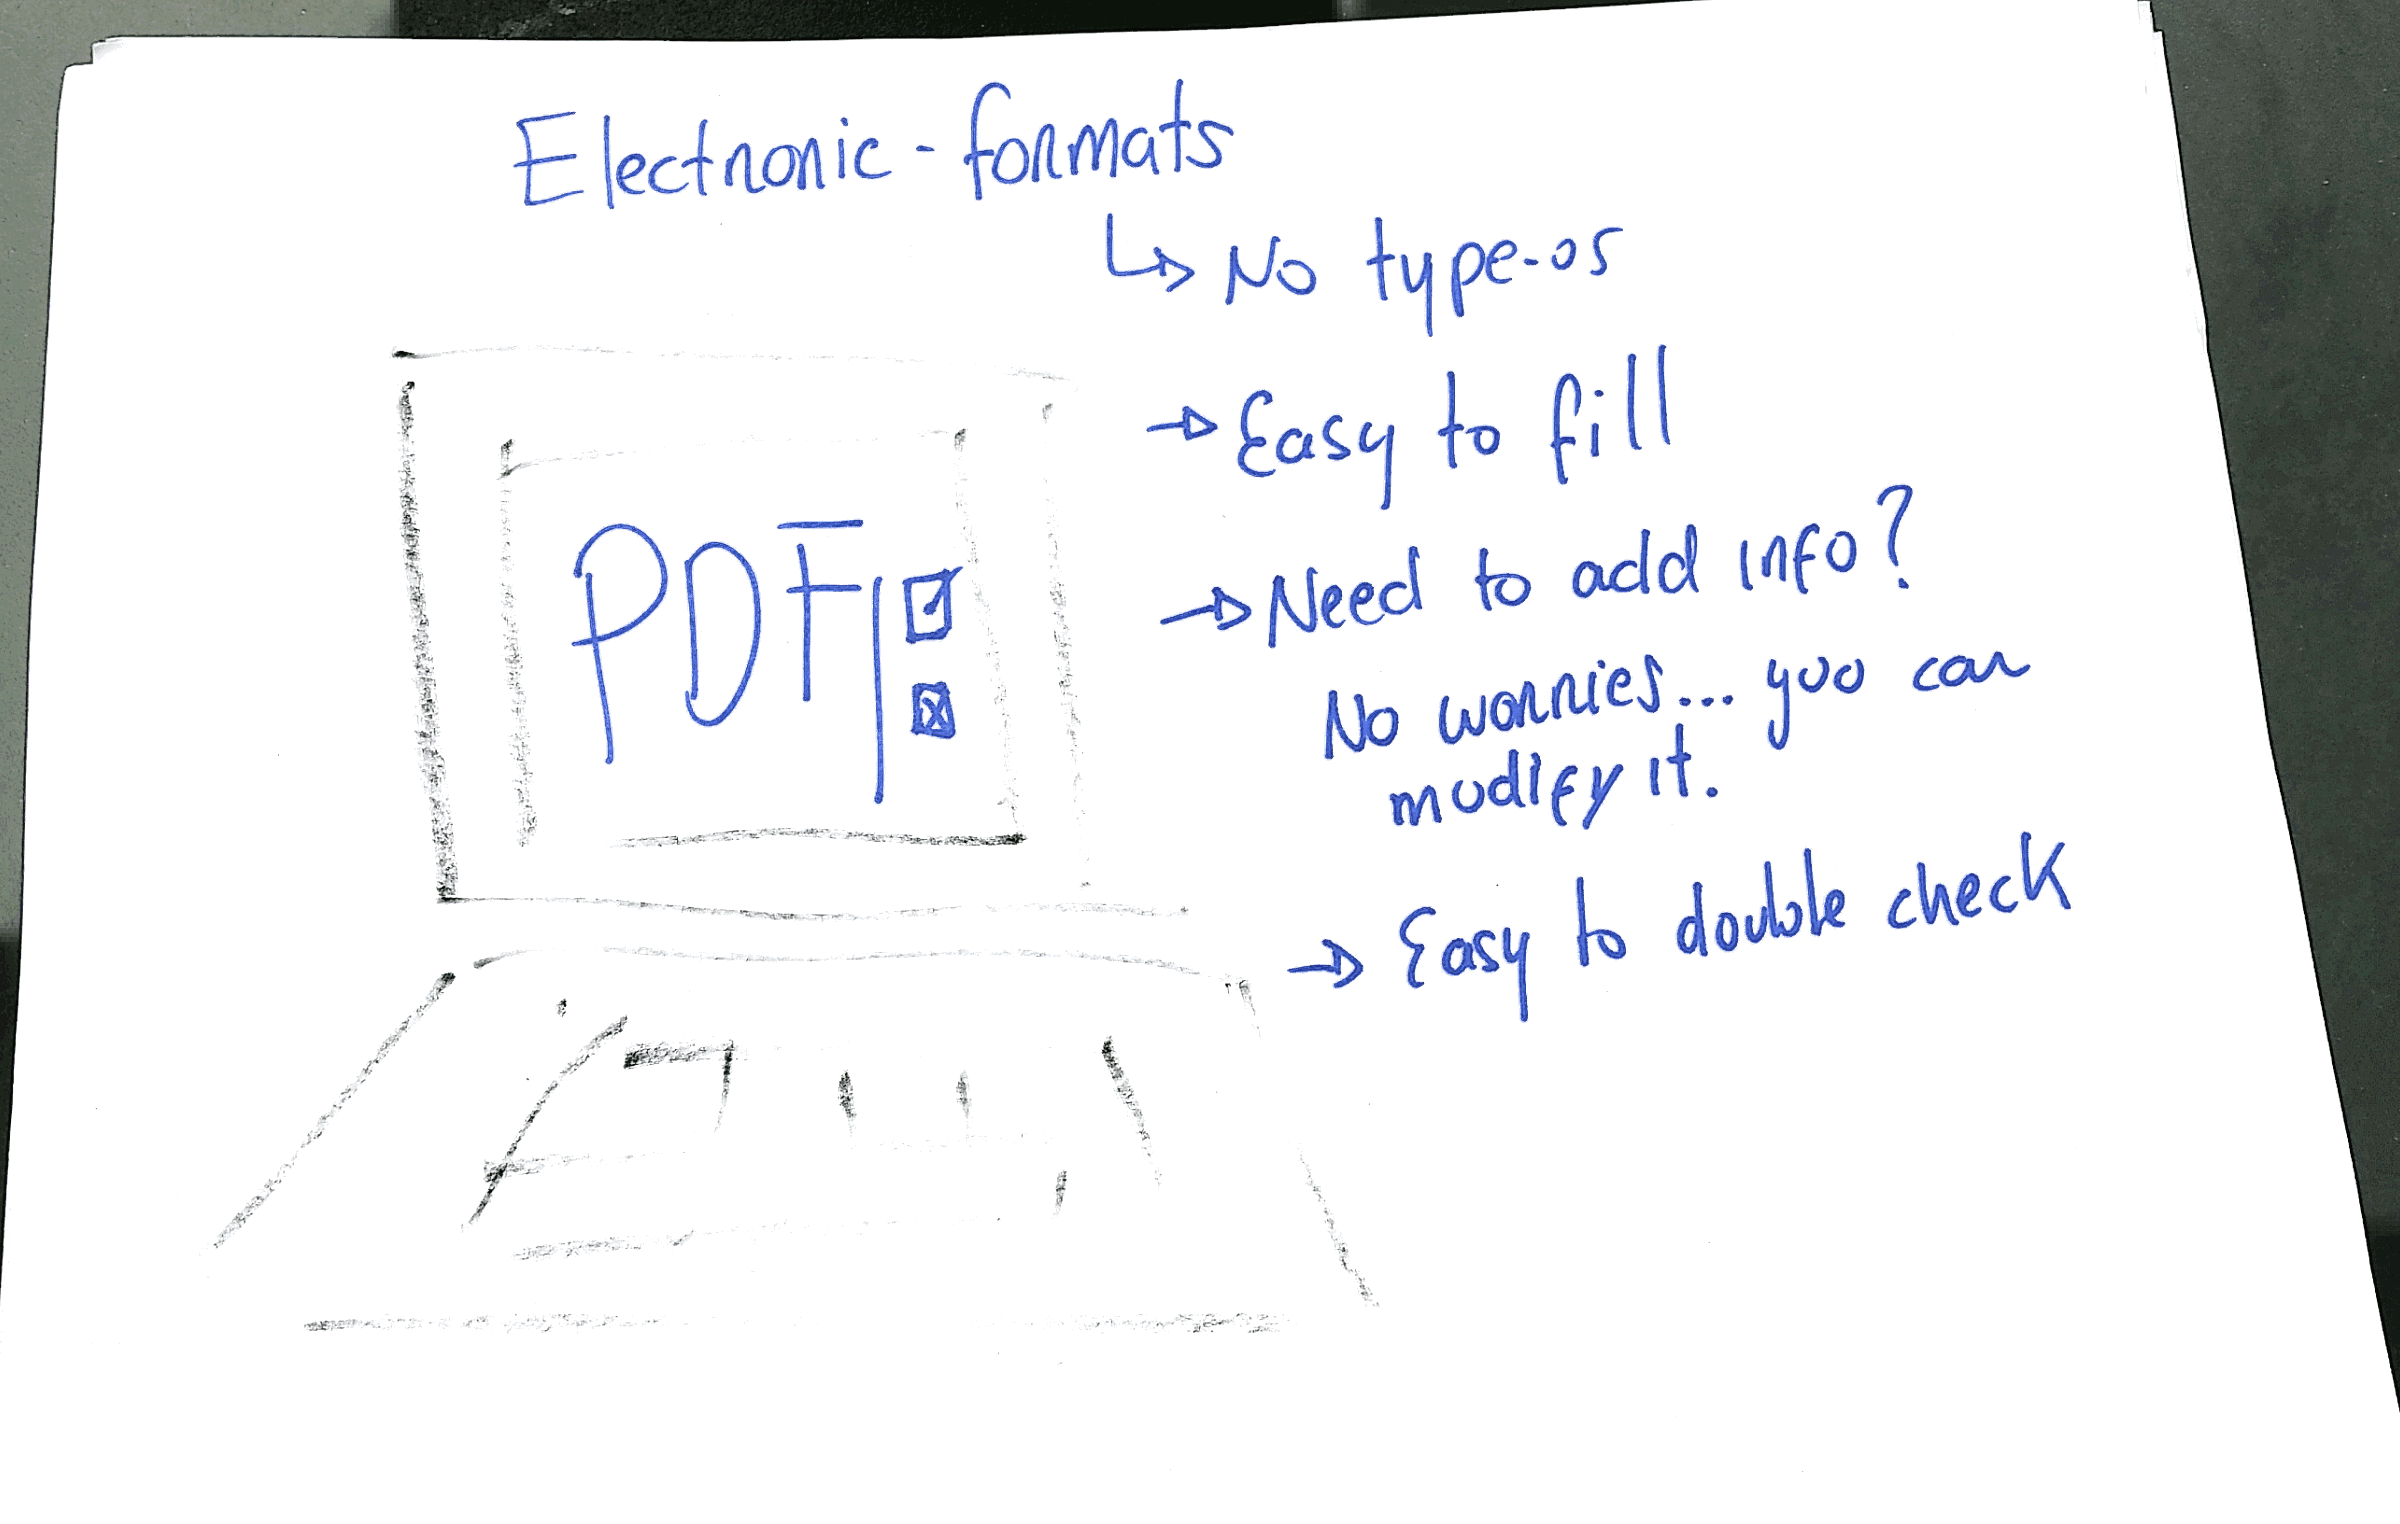 Electronic-formats
↳ No type-os
→ Easy to fill
→ Need to add info?
No worries... you can
modify it.
→ Easy to double check
PDF